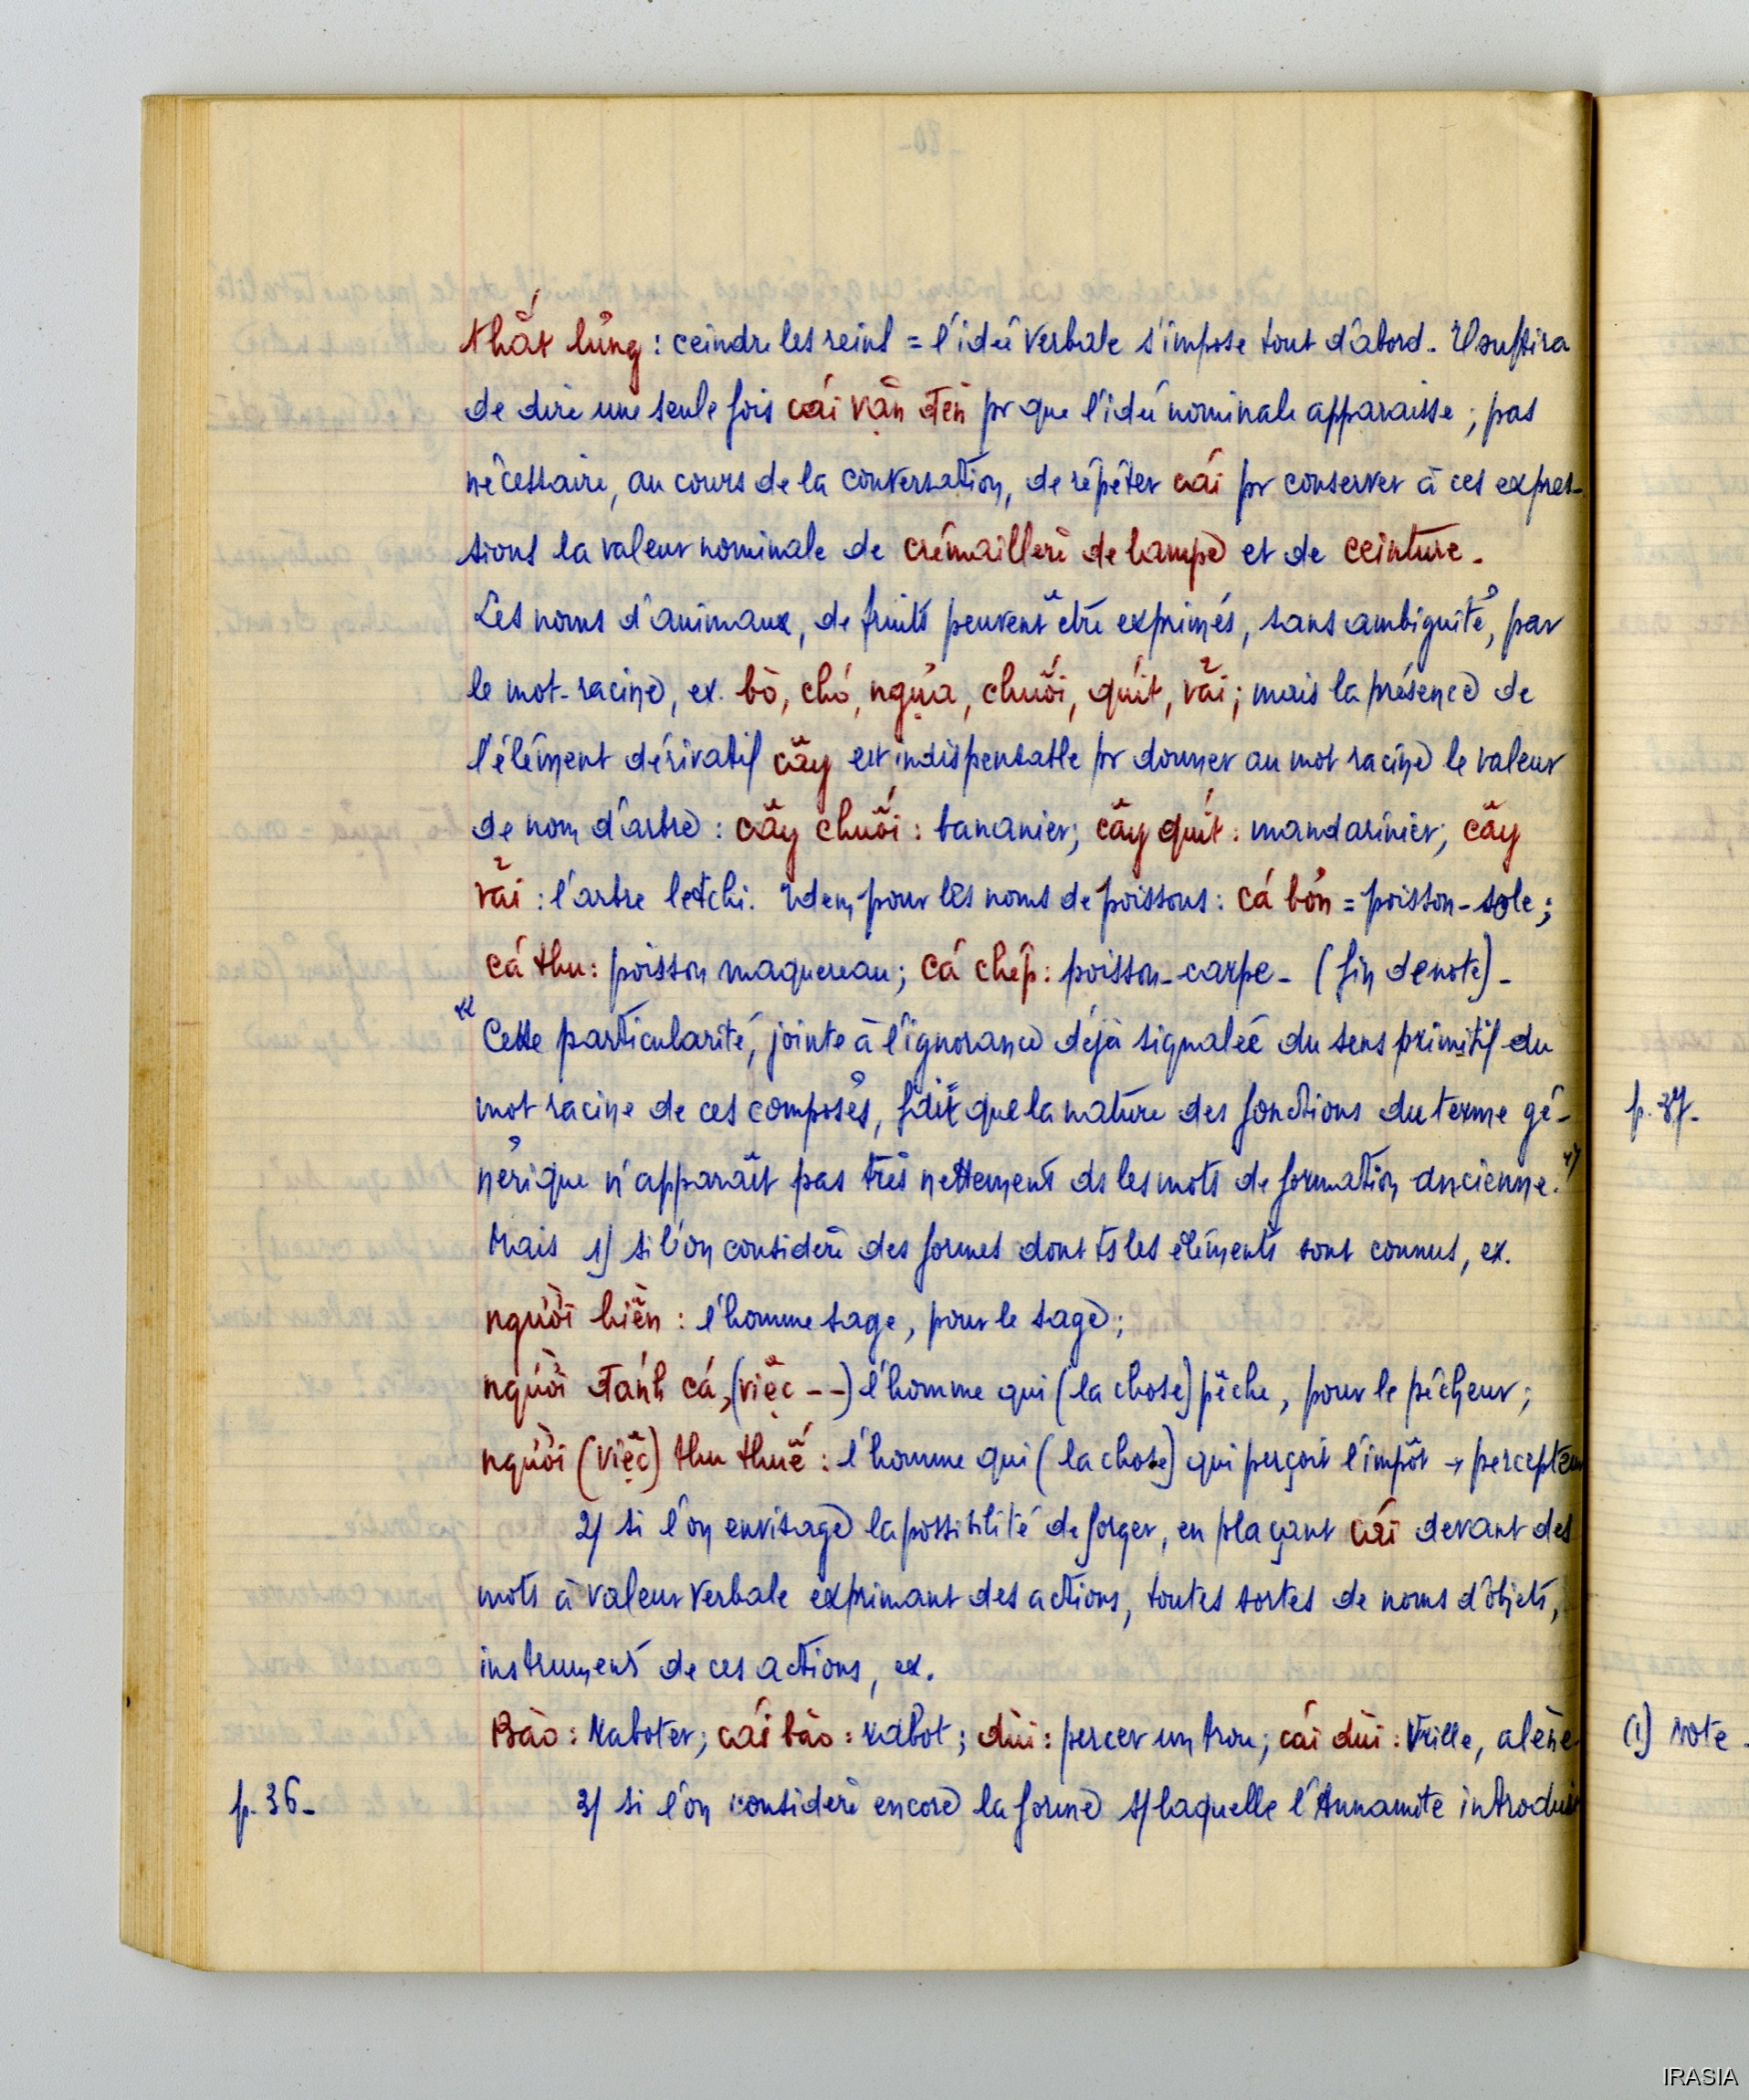 thắt lưng : ceindre les reins = l'idée verbale s'impose tout d'abord. Il suffira
de dire une seule fois cái vặn đèn pr que l'idée nominale apparaisse ; pas
nécessaire, au cours de la conversation, de répéter cái pr conserver à ces expres-
sions la valeur nominale de crémaillère de lampe et de ceinture.
Les noms d'animaux, de fruits peuvent être exprimés, sans ambiguité, par
le mot-racine, ex. bò, chó, ngựa, chuối, quít, vải ; mais la présence de
l'élément dérivatif cây est indispensable pr donner au mot racine le valeur
de nom d'arbre : cây chuối : bananier; cây quít : mandarinier; cây
vải : l'arbre letchi. Idem pour les noms de poissons : cá bơn = poisson-sole ;
cá thu : poisson maquereau ; cá chép : poisson-carpe - (fin de note) -
Cette particularité, jointe à l'ignorance déjà signalée du sens primitif du
mot racine de ces composés, fait que la nature des fonctions du terme gé-
nérique n'apparaît pas très nettement ds les mots de formation ancienne.
Mais 1/ si l'on considère des formes dont ts les éléments sont connus, ex.
người hiền : l'homme sage, pour le sage ;
người đánh cá, (việc - -) l'homme qui (la chose) pêche, pour le pêcheur ;
người (việc) thu thuế : l'homme qui (la chose) qui perçoit l'impôt → percepteur
2/ si l'on envisage la possibilité de forger, en plaçant cái devant des
mots à valeur verbale exprimant des actions, toutes sortes de noms d'objets,
instruments de ces actions, ex.
Bào : Raboter ; cái bào : rabot ; dùi : percer un trou ; cái dùi : Vrille, alène
p. 36 -
3/ si l'on considère encore la forme s/ laquelle l'Annamite introduit
p. 37 -
(1) Note -
IRASIA